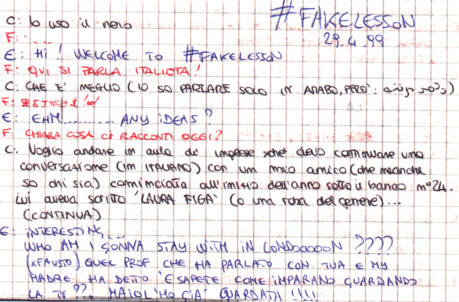 #FAKELESSON
29.4.99
C: Io uso il nero
F: ...
E: Hi! WELCOME TO #FAKELESSON
F: QUI SI PARLA ITALIOTA!
C: CHE E' MEGLIO (IO SO PARLARE SOLO IN ARABO, PERÒ:
F:
E: EHM......... ANY IDEAS?
F: CHIARA COSA CI RACCONTI OGGI?
C: Voglio andare in aula di inglese xché devo continuare una
conversazione (IN ITALIANO) con un mio amico (che neanche
so chi sia) cominciata all'inizio dell'anno sotto il banco n°24.
Lui aveva scritto "LAURA FIGA" (o una roba del genere)...
(CONTINUA)
E: INTERESTING...
WHO AM I GONNA STAY WITH IN LONDOOOOON ????
(xFAUSTO) QUEL PROF CHE HA PARLATO CON TUA E MY
MADRE HA DETTO "E SAPETE COME IMPARANO GUARDANDO
LA TV?? MAIOL'HO GIA' GUARDATA !!!!